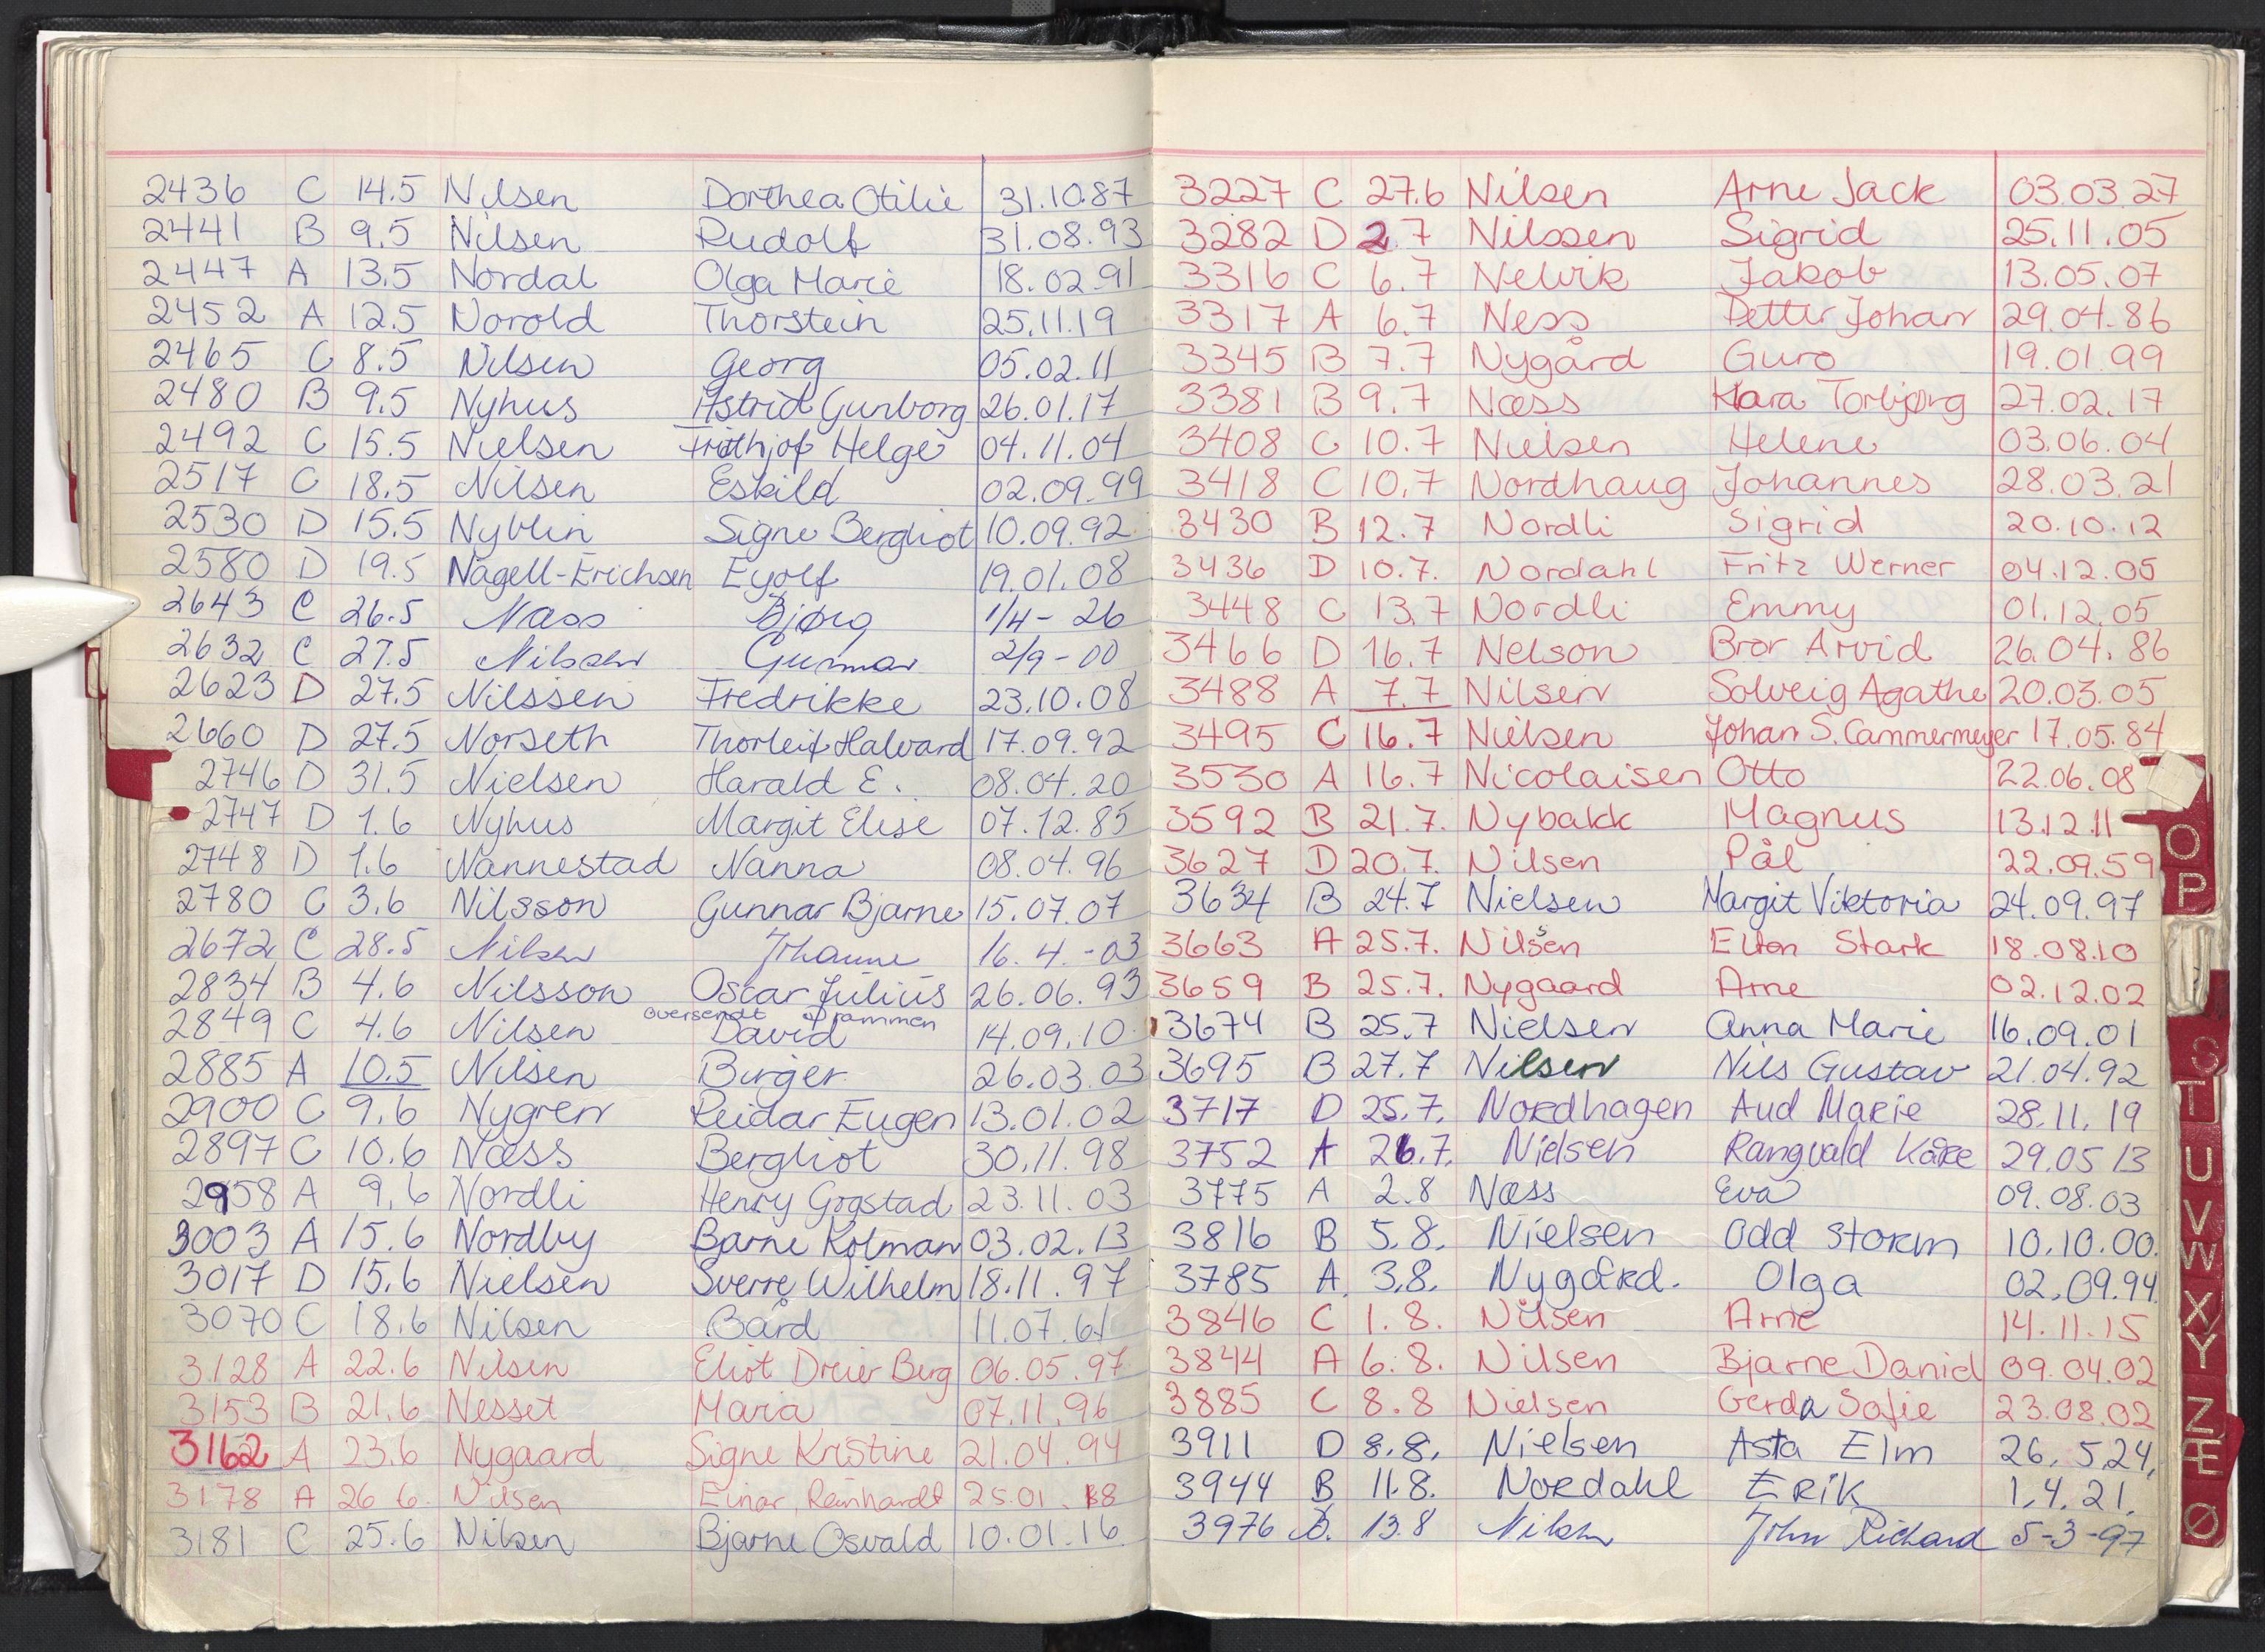 2436 C 14.5 Nilsen Dorthea Otilie 31.10.87
2441 B 9.5 Nilsen Rudolf 31.08.93
2447 A 13.5 Nordal Olga Marie 18.02.91
2452 A 12.5 Norold Thorstein 25.11.19
2465 C 8.5 Nilsen Georg 05.02.11
2480 B 9.5 Nyhus Astrid Gunborg 26.01.17
2492 C 15.5 Nielsen Frithjof Helge 04.11.04
2517 C 18.5 Nilsen Eskild 02.09.99
2530 D 15.5 Nyblin Signe Bergliot 10.09.92
2580 D 19.5 Nagell-Erichsen Eyolf 19.01.08
2643 C 26.5 Næss Bjørg 1/4-26
2632 C 27.5 Nilsen Gunnar 2/9-00
2623 D 27.5 Nilssen Fredrikke 23.10.08
2660 D 27.5 Norseth Thorleif Halvard 17.09.92
2746 D 31.5 Nielsen Harald E. 08.04.20
2747 D 1.6 Nyhus Margit Elise 07.12.85
2748 D 1.6 Nannestad Nanna 08.04.96
2780 C 3.6 Nilsson Gunnar Bjarne 15.07.07
2672 C 28.5 Nilsen Johanne 16.4.-03
2834 B 4.6 Nilsson Oscar Julius 26.06.93
oversendt Drammen
2849 C 4.6 Nilsen David 14.09.10
2885 A 10.5 Nilsen Birger 26.03.03
2900 C 9.6 Nygren Reidar Eugen 13.01.02
2897 C 10.6 Næss Bergliot 30.11.98
2958 A 9.6 Nordli Henry Gogstad 23.11.03
3003 A 15.6 Nordby Bjarne Kolman 03.02.13
3017 D 15.6 Nielsen Sverre Wilhelm 18.11.97
3070 C 18.6 Nilsen Bård 11.07.61
3128 A 22.6 Nilsen Eliot Dreier Berg 06.05.97
3153 B 21.6 Nesset Maria 07.11.96
3162 A 23.6 Nygaard Signe Kristine 21.04.94
3178 A 26 6 Nilsen Einar Reinhardt 25.01.88
3181 C 25.6 Nilsen Bjarne Osvald 10.01.16
3227 C 27.6 Nilsen Arne Jack 03.03.27
3282 D 2.7 Nilssen Sigrid 25.11.05
3316 C 6.7 Nelvik Jakob 13.05.07
3317 A 6.7 Ness Petter Johan 29.04.86
3345 B 7.7 Nygård Guro 19.01.99
3381 B 9.7 Næss Klara Torbjørg 27.02.17
3408 C 10.7 Nielsen Helene 03.06.04
3418 C 10.7 Nordhaug Johannes 28.03.21
3430 B 12.7 Nordli Sigrid 20.10.12
3436 D 10.7. Nordahl Fritz Werner 04.12.05
3448 C 13.7 Nordli Emmy 01.12.05
3466 D 16.7 Nelson Bror Arvid 26.04.86
3488 A 7.7 Nilsen Solveig Agathe 20.03.05
3495 C 16.7 Nielsen Johan S. Cammermeyer 17.05.84
3530 A 16.7 Nicolaisen Otto 22.06.08
3592 B 21.7. Nybakk Magnus 13.12.11
3627 D 20.7. Nilsen Pål 22.09.59
3634 B 24.7 Nielsen Margit Viktoria 24.09.97
3663 A 25.7. Nilssen Elton Stark 18.08.10
3659 B 25.7. Nygaard Arne 02.12.02
3674 B 25.7 Nielsen Anna Marie 16.09.01
3695 B 27.7 Nilsen Nils Gustav 21.04.92
3717 D 25.7. Nordhagen Aud Marie 28.11.19
3752 A 26.7. Nielsen Rangvald Kåre 29.05 13
3775 A 2.8 Næss Eva 09.08.03
3816 B 5.8. Nielsen Odd Storm 10.10.00.
3785 A. 3.8. Nygård. Olga 02.09.94.
3846 C 1.8. Nilsen Arne 14.11.15
3844 A 6.8. Nilsen Bjarne Daniel 09.04.02
3885 C 8.8 Nielsen Gerda Sofie 23.08.02
3911 D 8.8. Nielsen Asta Elm 26.5.24.
3944 B 11.8. Nordahl Erik 1.4.21.
3976 13.8 Nilsen John Richard 5-3-97
O
P
S
T
U
V
W
X
Y
Z
Æ
Ø